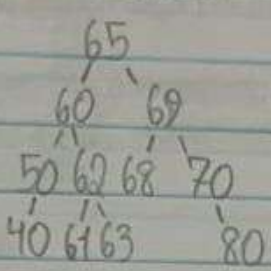 65
60 69
50 62 68 70
40 61 63 80